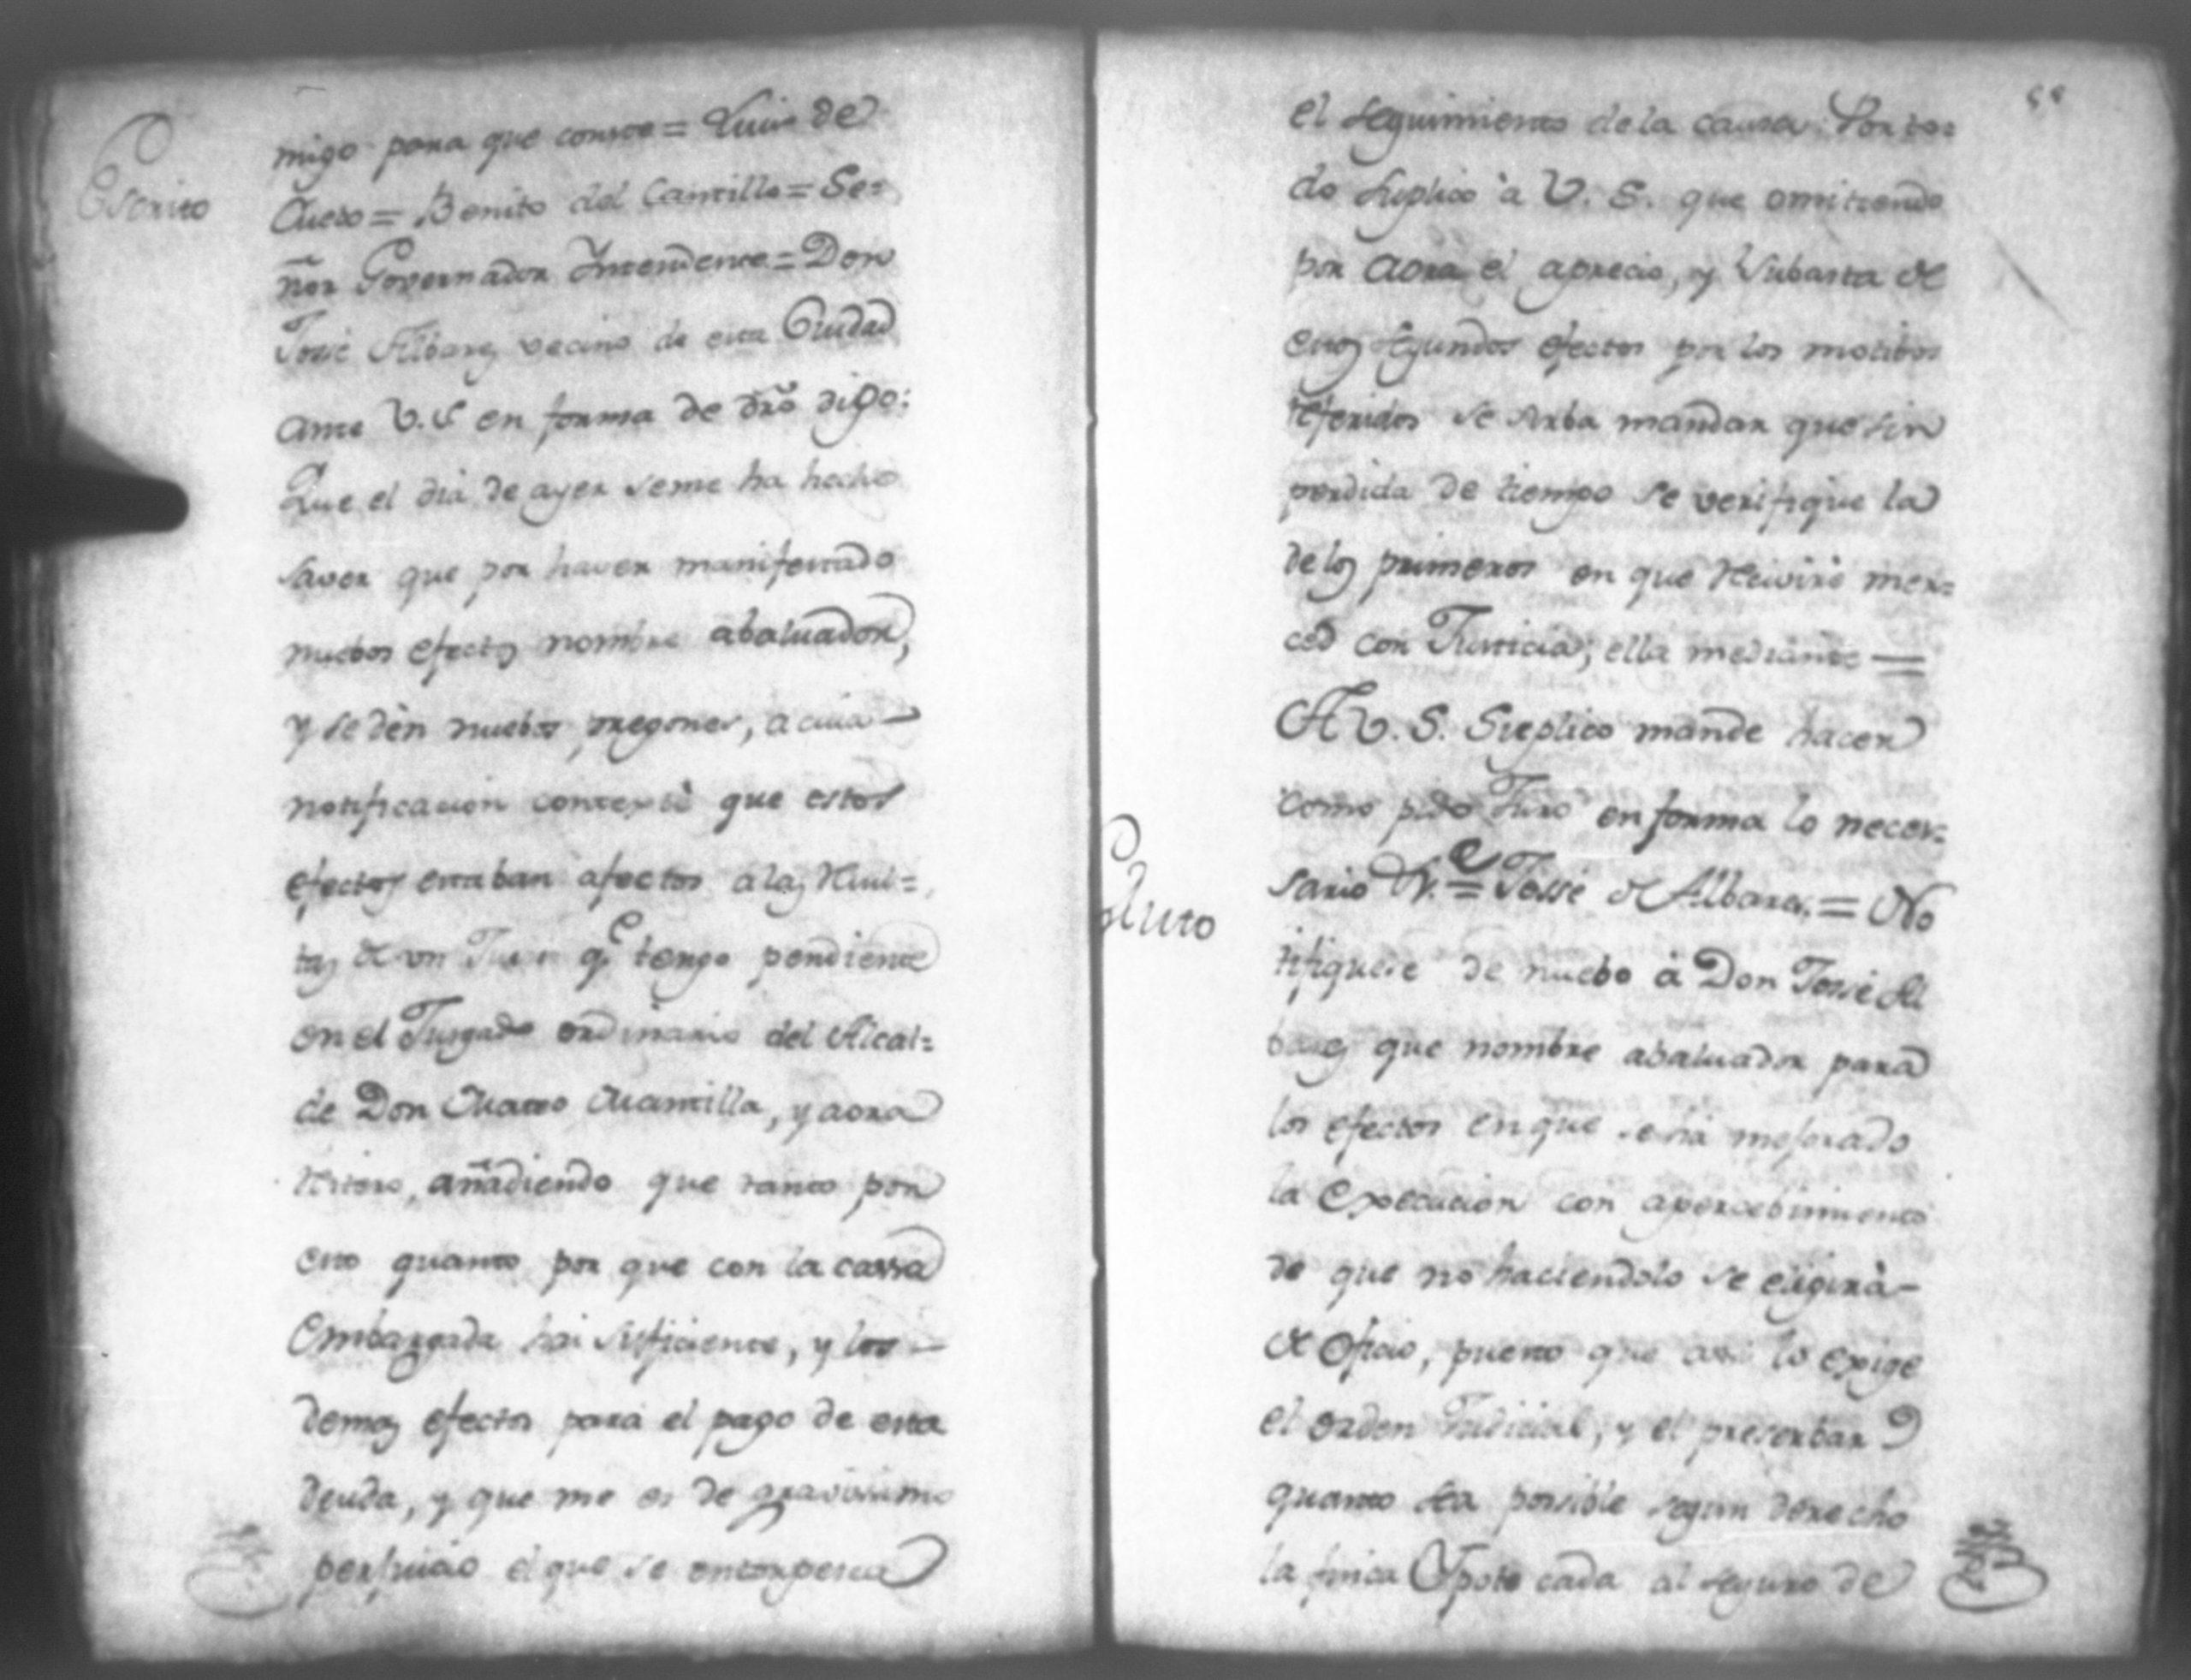 Escrito
migo para que conste = Luis de
Cueto = Benito del Cantillo = Se=
ñor Governador Yntendente = Don
Josse Albarez vecino de esta Ciudad
ante V.S en forma de dr̃o digo:
Que el dia de ayer seme ha hecho
saver que por haver manifestado
nuebos efectos nombre abaluador,
y se dèn nuebos pregones, a cuia
notificacion contextè que estos
efectos estaban afectos alas Resul=
tas de un q.e tengo pendiente
en el Jusgado ordinario del Alcal=
de Don Mateo Mantilla, y aora
Reitero, añadiendo que tanto por
esto quanto por que con la cassa
Embargada hai suficiente, y los
demas efectos para el pago de esta
deuda, y que me es de gravissimo
perjuicio el que se entorpesca
el seguimiento dela causa. Por to=
do suplico à V. S. que omitiendo
por aora el aprecio, y Subasta de
estos segundos efectos por los motibos
referidos se sirba mandar que sin
perdida de tiempo se verifique la
delos primeros en que Reciviré mer=
ced con Justicia; ella mediante =
A V. S. Suplico mande hacer
como pido Juro en forma lo neces=
sario = Josse de Albares, = No
Auto
tifiquese de nuebo à Don Josse Al
barez que nombre abaluador para
los efectos en que se ha mejorado
la Execucion con apercebimiento
de que no haciendolo se eligirà
de oficio, puesto que assi lo exige
el orden Judicial, y el preserbar
quanto sea possible segun derecho
la finca Ypotecada al seguro de